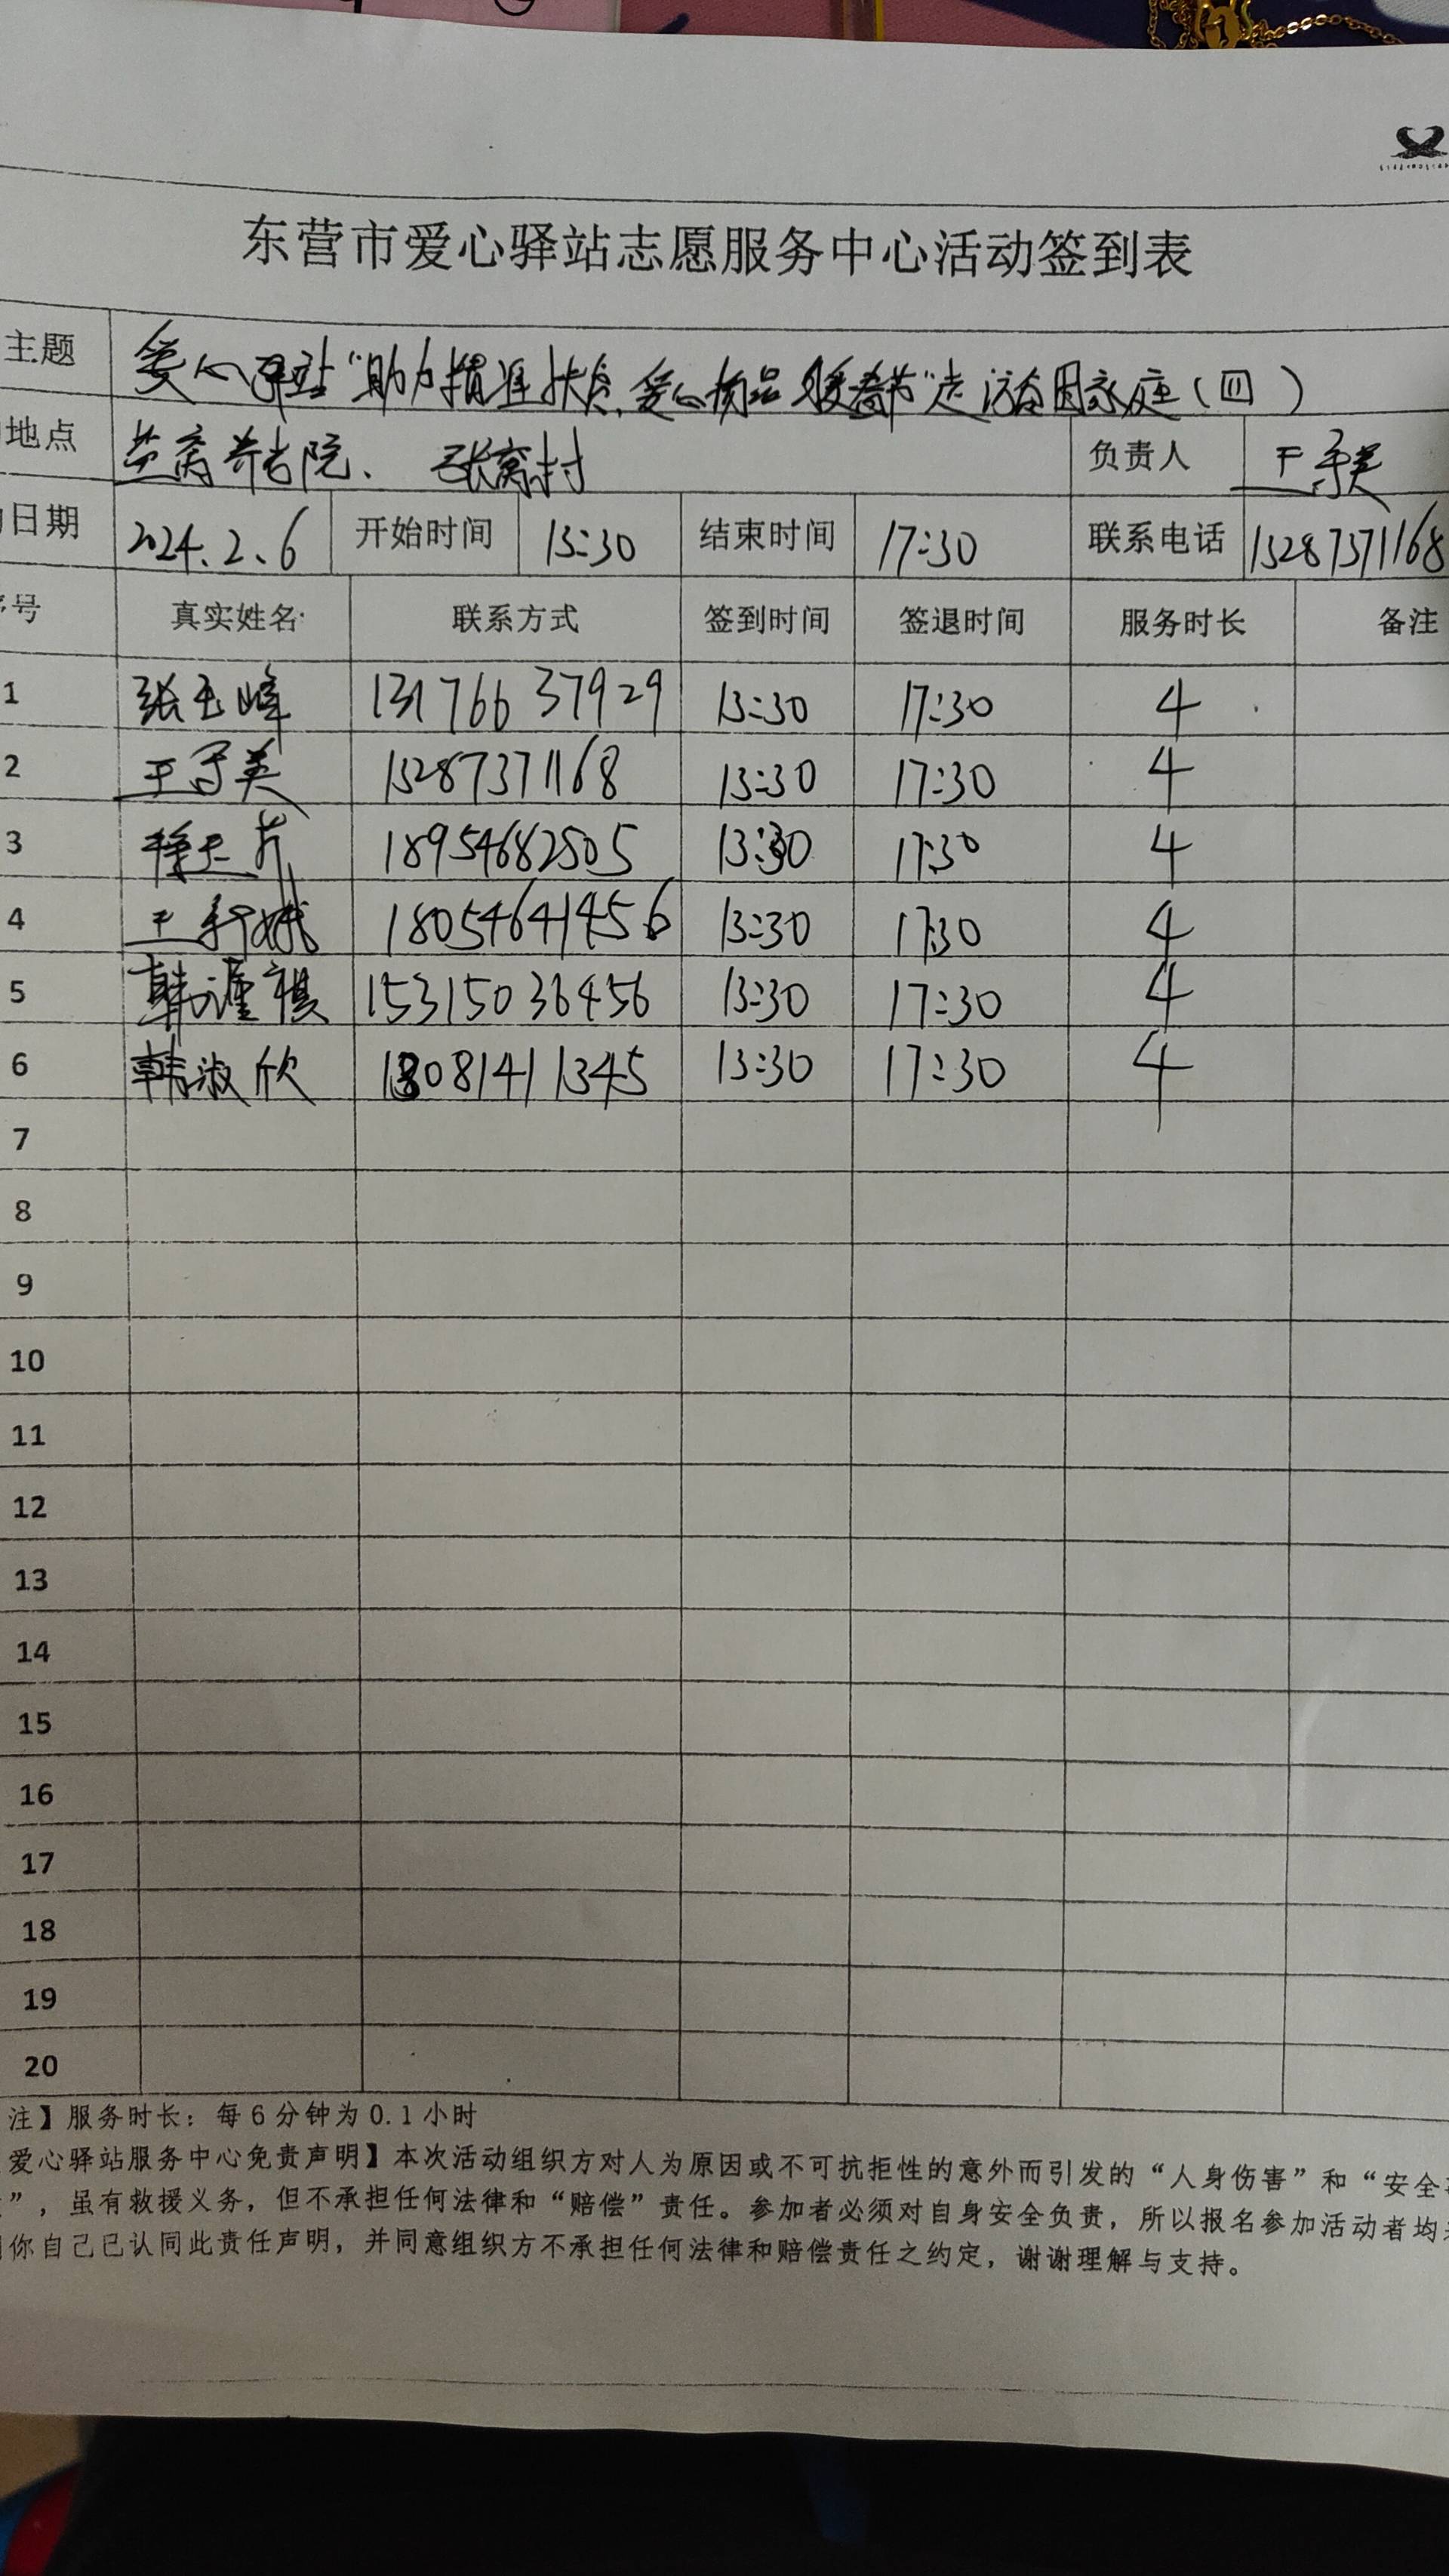 东营市爱心驿站志愿服务中心活动签到表
主题 爱心驿站“助力精准扶贫,爱心物品暖春节”走访困家庭(四)
地点 养老院、张窝村 负责人 王秀英
日期 2024.2.6 开始时间 13:30 结束时间 17:30 联系电话 15287371168
号 真实姓名 联系方式 签到时间 签退时间 服务时长 备注
1 张玉峰 13176637929 13:30 17:30 4
2 王秀英 15287371168 13:30 17:30 4
3 18954682505 13:30 17:30 4
4 王 18054641456 13:30 17:30 4
5 韩 祺 15315036456 13:30 17:30 4
6 韩淑欣 18081411345 13:30 17:30 4
7
8
9
10
11
12
13
14
15
16
17
18
19
20
注】服务时长:每6分钟为0.1小时
爱心驿站服务中心免责声明】本次活动组织方对人为原因或不可抗拒性的意外而引发的“人身伤害”和“安全
”,虽有救援义务,但不承担任何法律和“赔偿”责任。参加者必须对自身安全负责,所以报名参加活动者均
你自己已认同此责任声明,并同意组织方不承担任何法律和赔偿责任之约定,谢谢理解与支持。